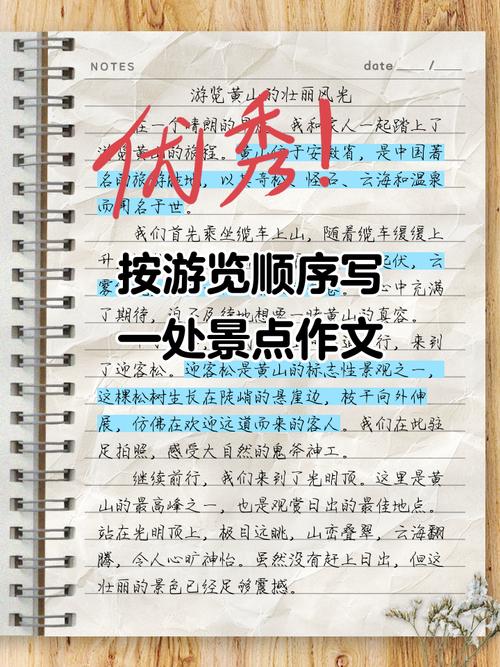 NOTES
date ___/___
游览黄山的壮丽风光
优秀!
在一个晴朗的 我和家人一起踏上了
游览黄山的旅程。黄山位于安徽省，是中国著
名的旅游胜地，以其奇松、怪石、云海和温泉
而闻名于世。
我们首先乘坐缆车上山，随着缆车缓缓上
升 起伏，云
雾 心中充满
按游览顺序写
了期待，迫不及待地想要一睹黄山的真容。
一处景点作文
行，来到
了迎客松。迎客松是黄山的标志性景观之一，
这棵松树生长在陡峭的悬崖边，枝干向外伸
展，仿佛在欢迎远道而来的客人。我们在此驻
足拍照，感受大自然的鬼斧神工。
继续前行，我们来到了光明顶。这里是黄
山的最高峰之一，也是观赏日出的最佳地点。
站在光明顶上，极目远眺，山峦叠翠，云海翻
腾，令人心旷神怡。虽然没有赶上日出，但这
壮丽的景色已经足够震撼。